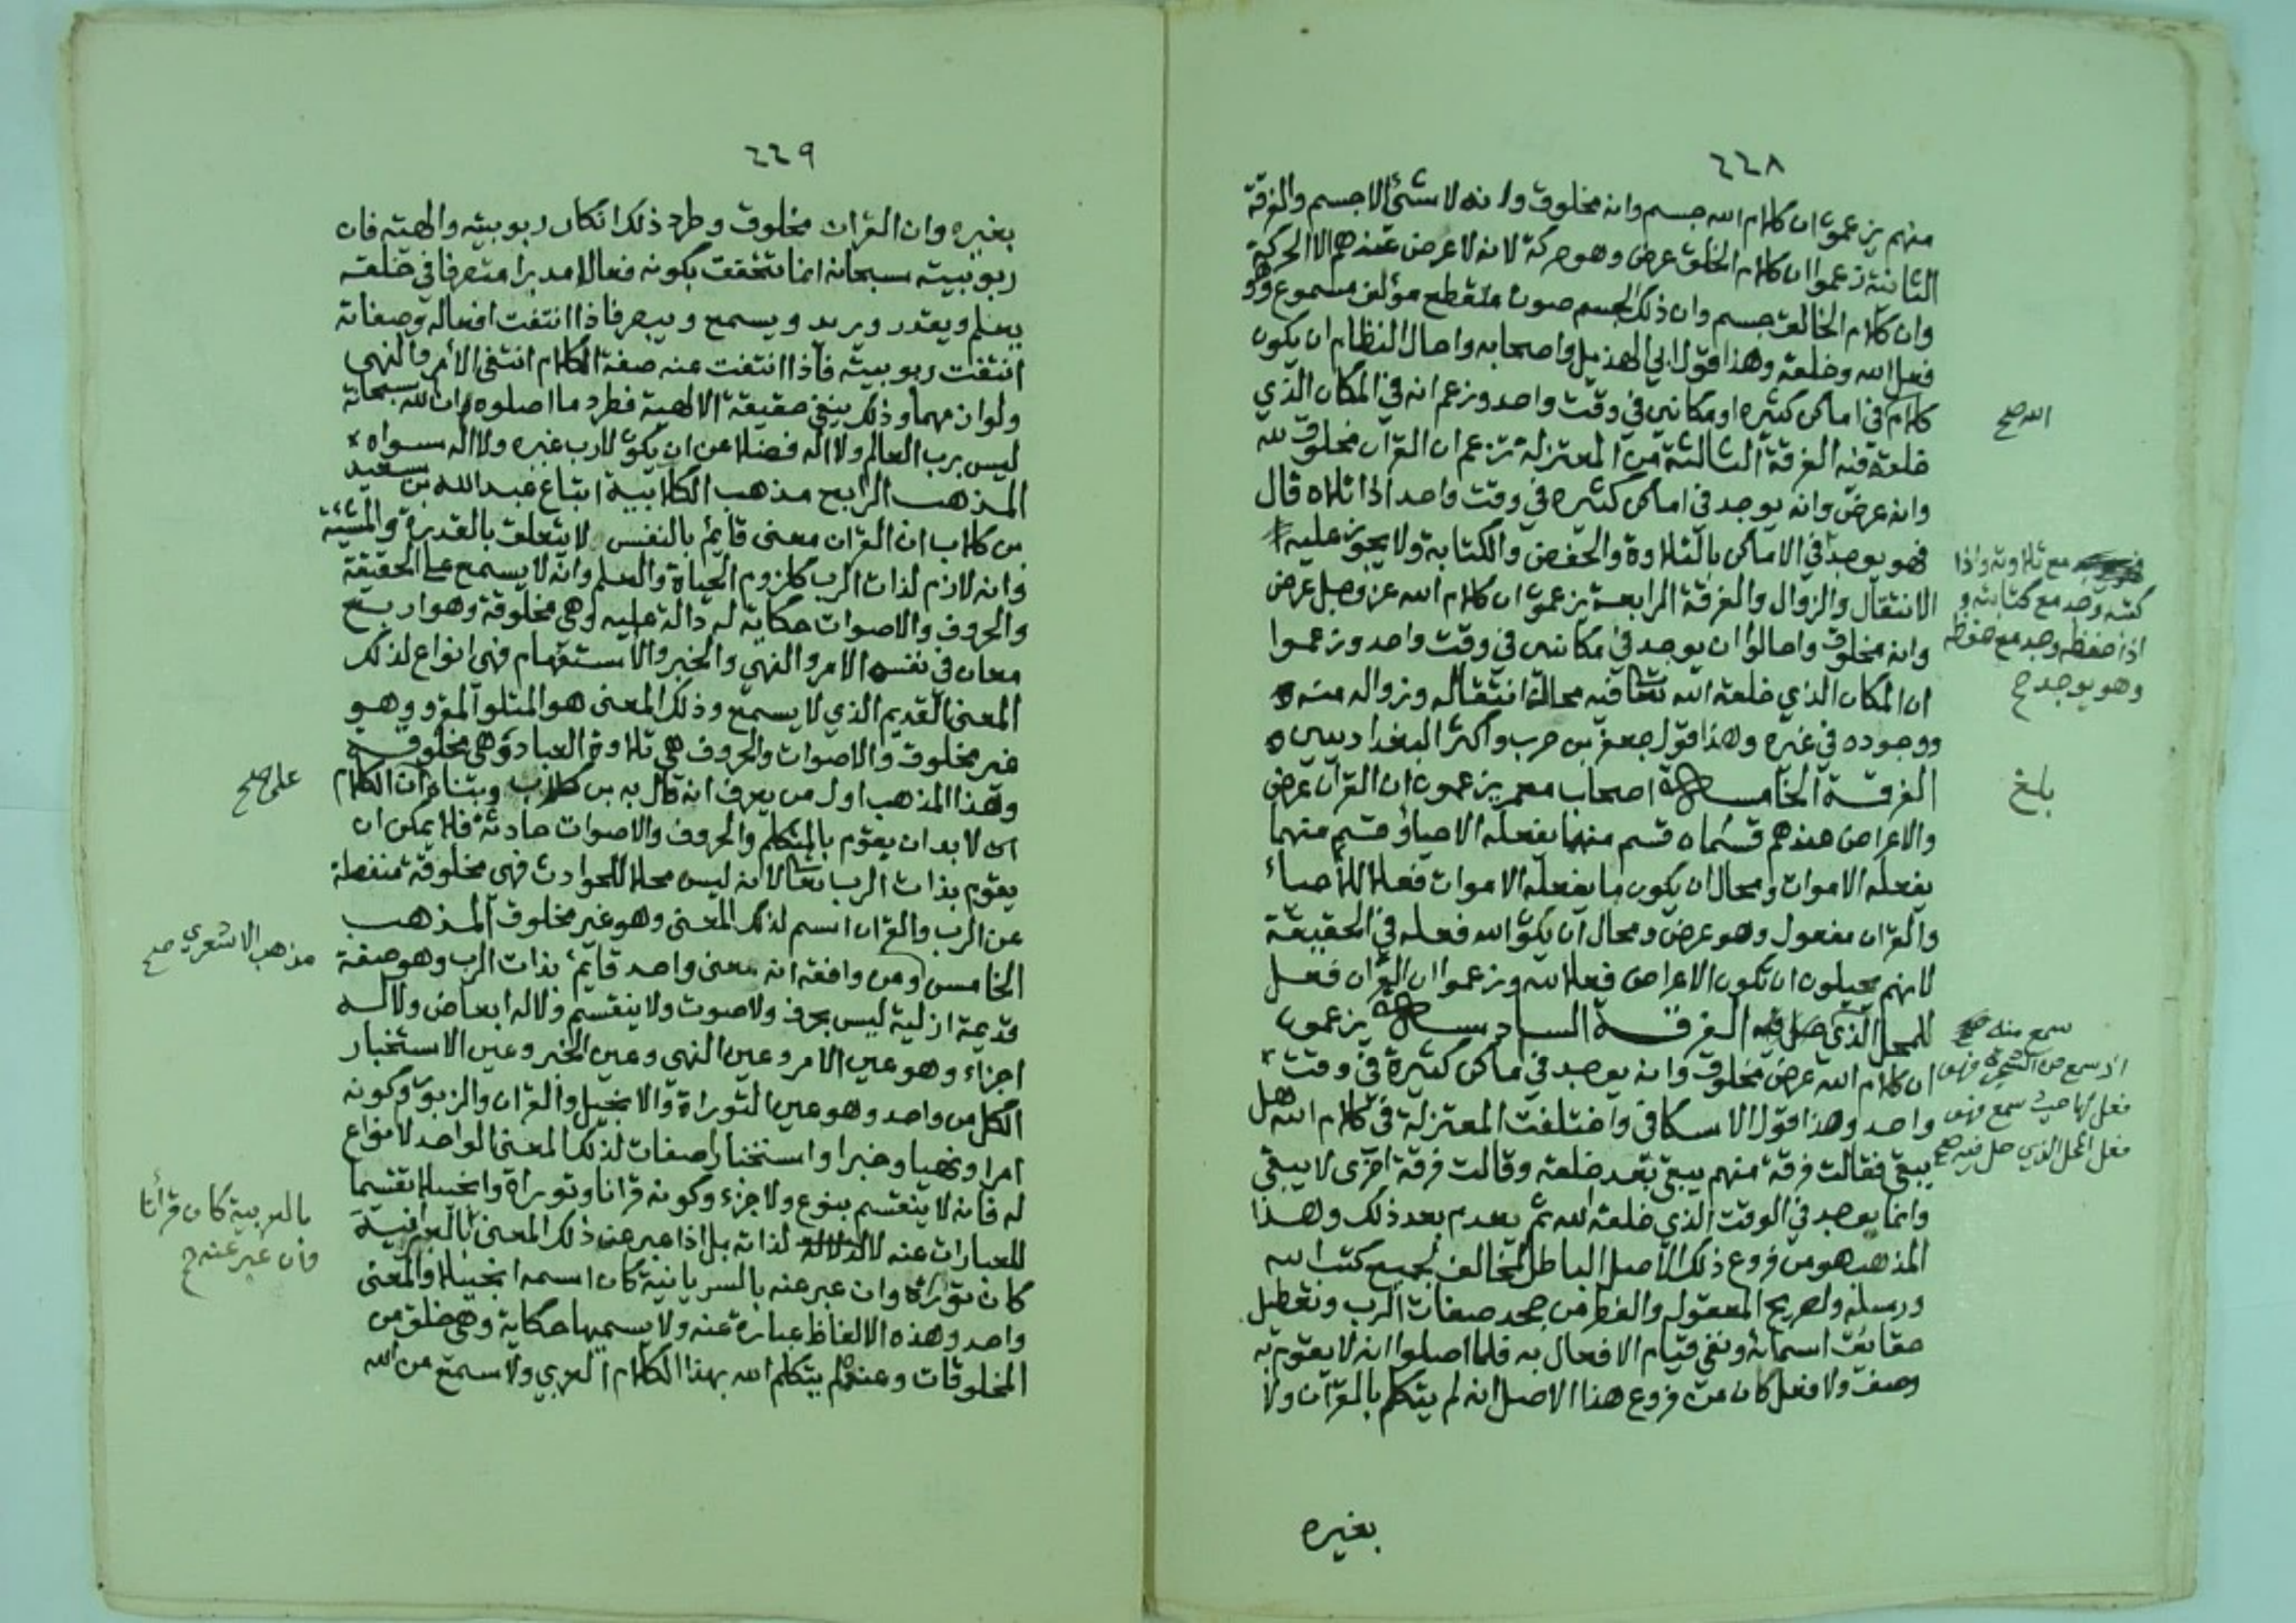 ٤٤٨
منهم يزعمون ان كلام الله جسم وانه مخلوق ولانه لا شئ الا جسم والفرقة
الثانية زعموا ان كلام الخلق عرض وهو حركة لانه لا عرض عندهم الا الحركة
وان كلام الخالق جسم وان ذلك الجسم صوت متقطع مؤلف مسموع وهو
فعل الله وخلقه وهذا قول ابي الهذيل واصحابه واحال النظام ان يكون
كلام في اماكن كثيره او مكانين في وقت واحد وزعم انه في المكان الذي
خلقه فيه الفرقة الثالثة من المعتزله تزعم ان القران مخلوق لله
وانه عرض وانه يوجد في اماكن كثيره في وقت واحد اذا تلاه قال
فهو يوجد في الاماكن بالتلاوة والحفض والكتابة ولا يجوز عليه
الانتقال والزوال والفرقة الرابعة يزعمون ان كلام الله عز وجل عرض
وانه مخلوق واحالوا ان يوجد في مكانين في وقت واحد وزعموا
ان المكان الذي خلقه الله تعا فيه محال انتقاله وزواله منه
ووجوده في غيره وهذا قول جعفر بن حرب واكثر البغداديين
الفرقة الخامسة اصحاب معمر يزعمون ان القرآن عرض
والاعراض عندهم قسمان قسم منهما يفعله الاحياء وقسم منهما
يفعله الاموات ومحال ان يكون ما يفعله الاموات فعلا للأحياء
والقران مفعول وهو عرض ومحال ان يكون الله فعله في الحقيقة
لانهم يحيلون ان تكون الاعراض فعلا لله وزعموا ان القران فعل
للمحل الذي حل فيه الفرقة السادسة يزعمون
ان كلام الله عرض مخلوق وانه يوجد في ماكن كثيرة في وقت
واحد وهذا قول الاسكافي واختلفت المعتزلة في كلام الله هل
يبقى فقالت فرقة منهم يبقى بعد خلقه وقالت فرقة اخرى لا يبقى
وانما يوجد في الوقت الذي خلقه الله ثم يعدم بعد ذلك وهذا
المذهب هو من فروع ذلك الأصل الباطل المخالف لجميع كتب الله
ورسله ولصريح المعقول والفطر من جحد صفات الرب وتعطيل
حقايق اسمائه ونفي قيام الافعال به فلما اصلوا انه لا يقوم به
وصف ولا فعل كان من فروع هذا الاصل انه لم يتكلم بالقرآن ولا
بغيره
الله صح
مع تلاوته واذا
كتبه وجد مع كتابته و
اذا حفظه وجد مع حفظه
وهو يوجد ح
بلغ
سمع منه
ان سمع من الشجرة فهو
فعل لها حيث سمع فهو
فعل المحل الذي حل فيه صح
٤٤٩
بغيره وان القران مخلوق وطرد ذلك انكار ربوبيته والهيته فان
ربوبيته سبحانه انما تتحقق بكونه فعالا مدبرا متصرفا في خلقه
يعلم ويقدر ويريد ويسمع ويبصر فاذا انتفت افعاله وصفاته
انتفت ربوبيته فاذا انتفت عنه صفة الكلام انتفى الأمر والنهي
ولوازمهما وذلك ينفي حقيقة الالهية فطرد ما اصلوه ان الله سبحانه
ليس برب العالم ولا اله فضلا عن ان يكون لا رب غيره ولا اله سواه
المذهب الرابع مذهب الكلابية اتباع عبد الله بن سعيد
بن كلاب ان القران معنى قايم بالنفس لا يتعلق بالقدرة والمشئة
وانه لازم لذات الرب كلزوم الحياة والعلم وانه لا يسمع على الحقيقة
والحروف والاصوات حكاية له دالة عليه وهي مخلوقة وهو اربع
معان في نفسه الامر والنهي والخبر والاستفهام فهي انواع لذلك
المعنى القديم الذي لا يسمع وذلك المعنى هو المتلو المقرو وهو
غير مخلوق والاصوات والحروف هي تلاوة العباد وهي مخلوقة
وهذا المذهب اول من يعرف انه قال به بن كلاب وبناه ان الكلام
لا بد ان يقوم بالمتكلم والحروف والاصوات حادثة فلا يمكن ان
يقوم بذات الرب تعا لانه ليس محلا للحوادث فهي مخلوقة منفصلة
عن الرب والقران اسم لذلك المعنى وهو غير مخلوق المذهب
الخامس ومن وافقه انه معنى واحد قايم بذات الرب وهو صفة
قديمة ازلية ليس بحرف ولا صوت ولا ينقسم ولا له ابعاض ولا له
اجزاء وهو عين الامر وعين النهي وعين الخبر وعين الاستخبار
الكل من واحد وهو عين التوراة والانجيل والقران والزبور وكونه
امرا ونهيا وخبرا واستخبارا صفات لذلك المعنى الواحد لا انواع
له فانه لا ينقسم بنوع ولا جزء وكونه قرانا وتوراة وانجيلا تقسيما
للعبارات عنه لا لذاته بل اذا عبر عن ذلك المعنى بالعبرانية
كان توراة وان عبر عنه بالسريانية كان اسمه انجيلا والمعنى
واحد وهذه الالفاظ عبارة عنه ولا يسميها حكاية وهي خلق من
المخلوقات وعنده لم يتكلم الله بهذا الكلام العربي ولا سمع من الله
على صح
مذهب الاشعري صح
بالعربية كان قرأنا
وان عبر عنه ح